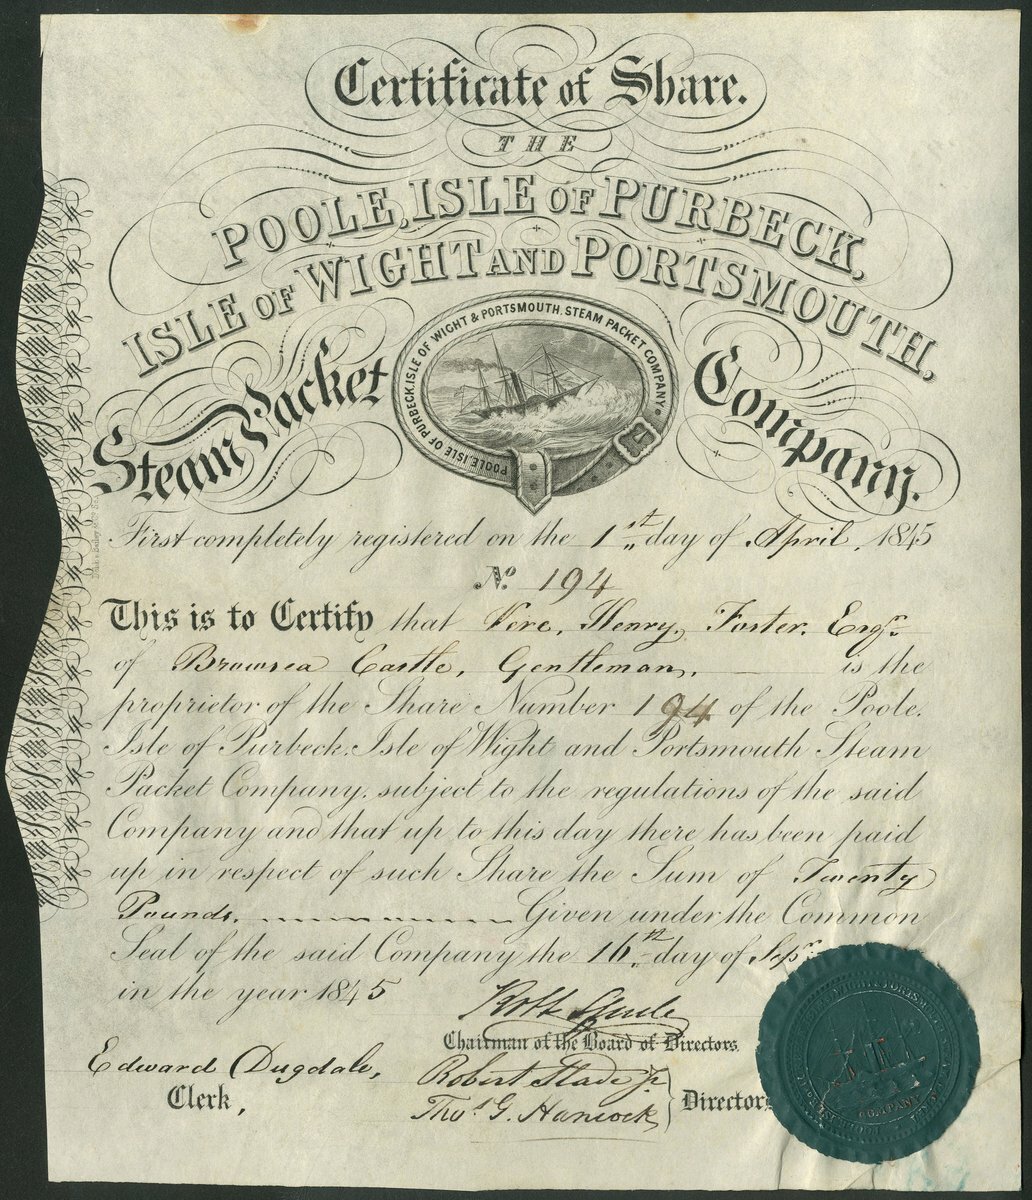 Certificate of Share.
THE
POOLE, ISLE OF PURBECK,
ISLE OF WIGHT AND PORTSMOUTH,
Steam Packet Company.
POOLE, ISLE OF PURBECK, ISLE OF WIGHT & PORTSMOUTH, STEAM PACKET COMPANY.
First completely registered on the 1st day of April, 1845
No. 194
This is to Certify that Vere, Henry, Foster, Esqr.
of Brownsea Castle, Gentleman, is the
proprietor of the Share Number 194 of the Poole,
Isle of Purbeck, Isle of Wight and Portsmouth Steam
Packet Company, subject to the regulations of the said
Company and that up to this day there has been paid
up in respect of such Share the Sum of Twenty
Pounds. Given under the Common
Seal of the said Company the 16th day of Sepr.
in the year 1845
Chairman of the Board of Directors.
Edward Dugdale,
Clerk,
Robert Slade Jr
Thos. G. Hancock
Directors
WIGHT & PORTSM
COMPANY